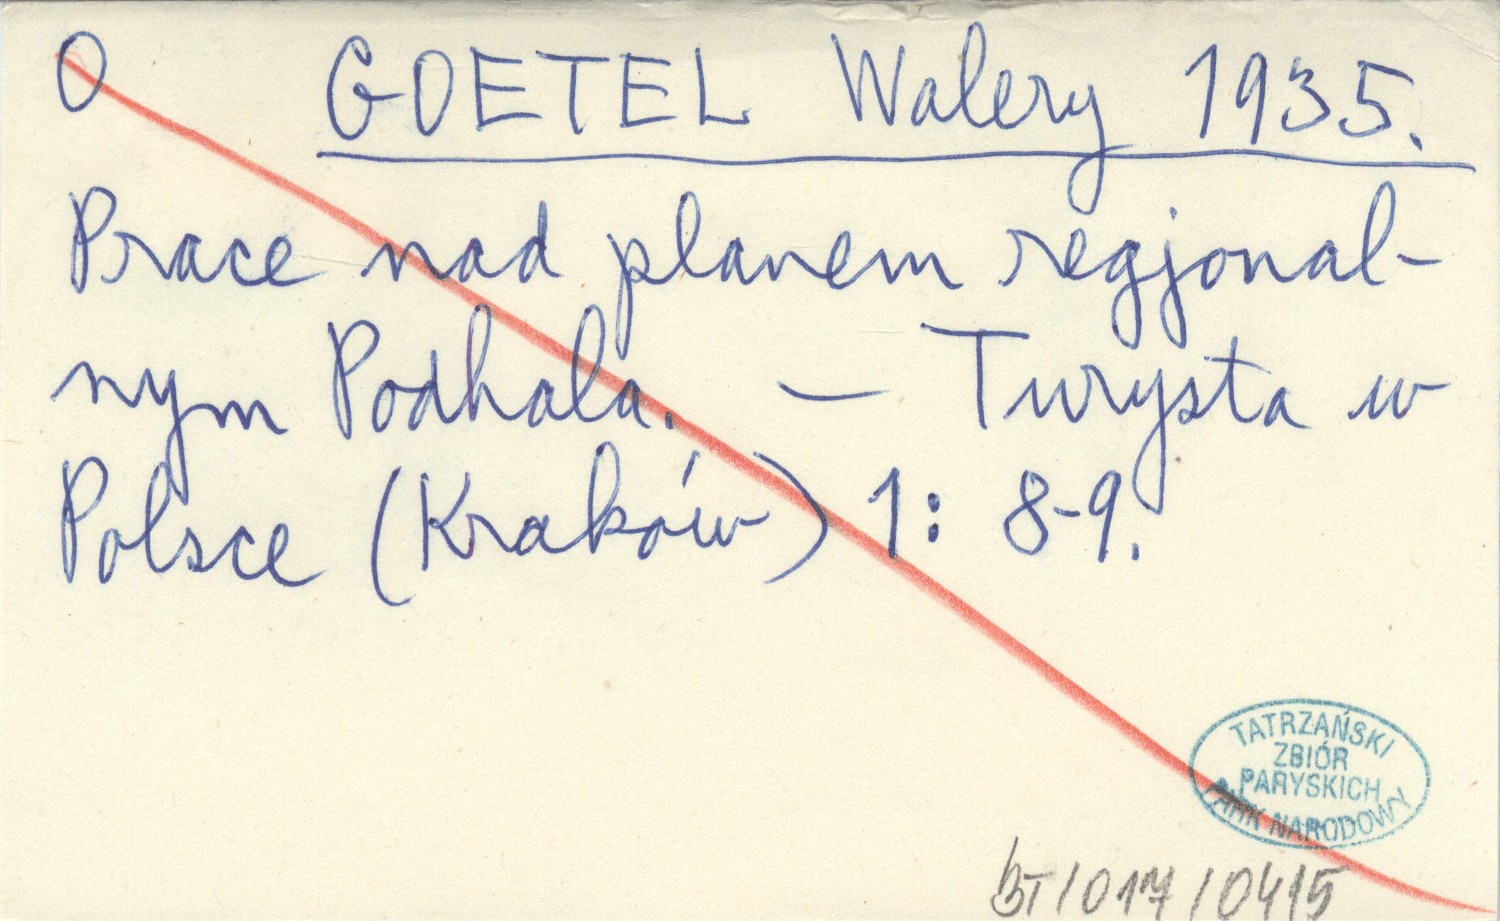 O GOETEL Walery 1935.
Prace nad planem regjonal-
nym Podhala. — Turysta w
Polsce (Kraków) 1: 8-9.
TATRZAŃSKI
ZBIÓR
PARYSKICH
PARK NARODOWY
BT/017/0415